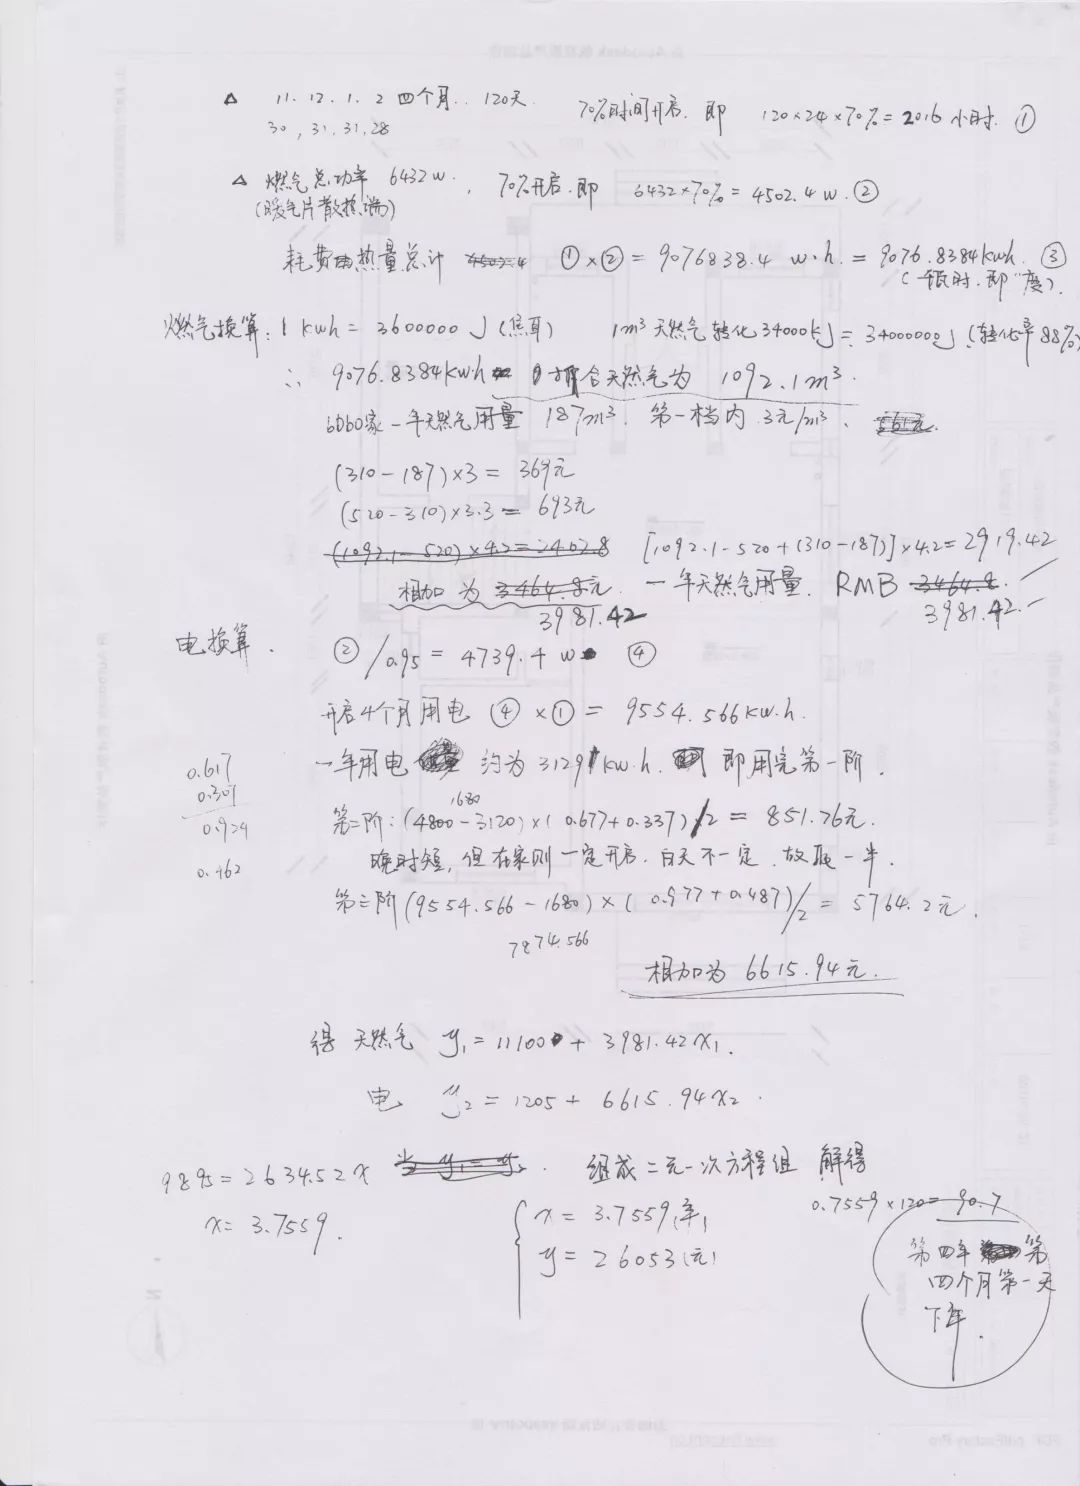 △ 11. 12. 1. 2 四个月.. 120天. 70%时间开启. 即 120×24×70%=2016小时. ①
30, 31, 31, 28
△ 燃气总功率 6432w. , 70%开启.即 6432×70%=4502.4w.②
(暖气片散热端)
耗费热量总计 4502.4 ①×②=9076838.4 w·h.=9076.8384kwh. ③
(千瓦时.即"度").
燃气换算: 1 kwh = 3600000J(焦耳) 1m³天然气转化34000kJ=34000000J(转化率88%)
∴ 9076.8384kwh 折合天然气为 1092.1m³.
6060家一年天然气用量 187m³. 第一档内 3元/m³. 561元.
(310-187)×3= 369元
(520-310)×3.3= 693元
(1092.1-520)×4.2=2402.8 [1092.1-520+(310-187)]×4.2=2919.42
相加为 3464.8元. 一年天然气用量. RMB 3464.8.
3981.42 3981.42.
电换算. ②/0.95 = 4739.4 w ④
开启4个月用电 ④×①= 9554.566kw.h.
一年用电 约为3129kw.h. 即用完第一阶.
0.617
0.307
0.924
0.462
1680
第二阶:(4800-3120)×(0.677+0.337)/2 = 851.76元.
晚时短,但在家则一定开启.白天不一定.故取一半.
第三阶(9554.566-1680)×(0.977+0.487)/2= 5764.2元.
7874.566
相加为 6615.94元.
得 天然气 y₁=11100+3981.42x₁.
电 y₂=1205+6615.94x₂.
9895=2634.52x 当 y₁=y₂. 组成二元一次方程组 解得
x=3.7559. { x=3.7559(年) 0.7559×120=90.7
y=26053(元)
第四年 第
四个月第一天
下午.